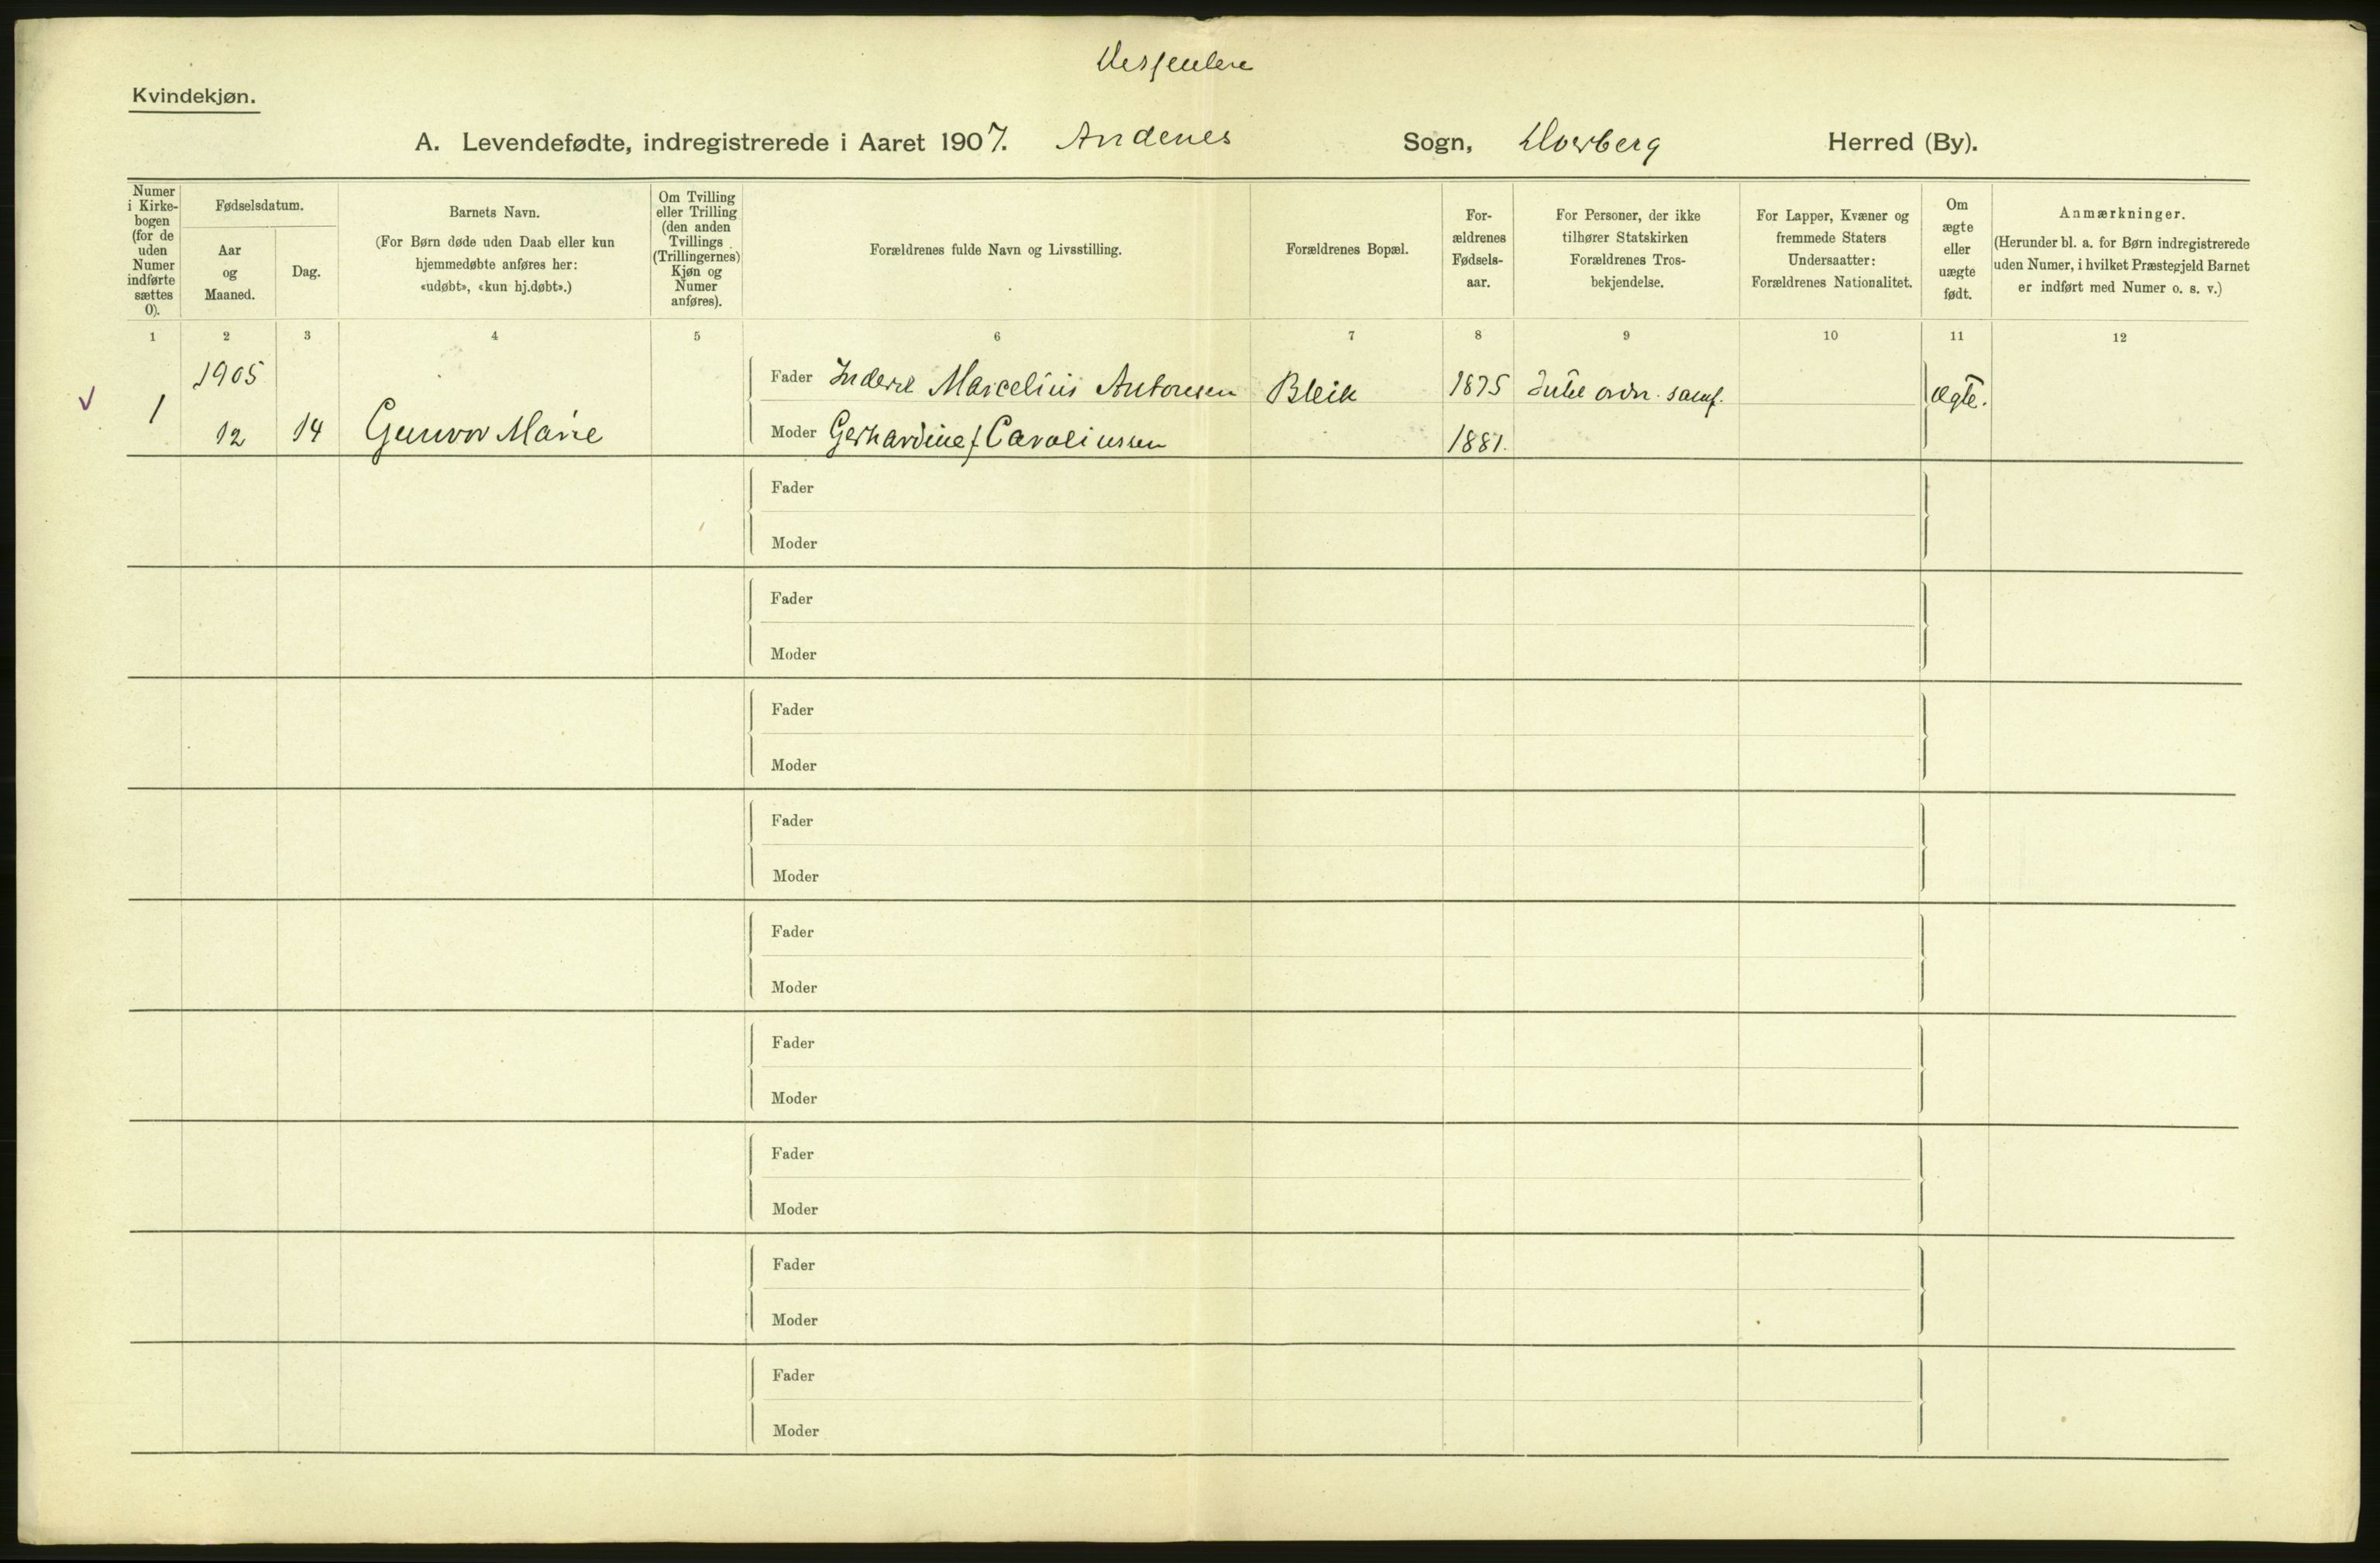 Kvindekjøn.
A. Levendefødte, indregistrerede i Aaret 1907. Andenes Sogn, Dverberg Herred (By).
Numer
i Kirke-
bogen
(for de
uden
Numer
indførte
sættes
0).
Fødselsdatum.
Aar
og
Maaned.
Dag.
Barnets Navn.
(For Børn døde uden Daab eller kun
hjemmedøbte anføres her:
«udøbt», «kun hj.døbt».)
Om Tvilling
eller Trilling
(den anden
Tvillings
(Trillingernes)
Kjøn og
Numer
anføres).
Forældrenes fulde Navn og Livsstilling.
Forældrenes Bopæl.
For-
ældrenes
Fødsels-
aar.
For Personer, der ikke
tilhører Statskirken
Forældrenes Tros-
bekjendelse.
For Lapper, Kvæner og
fremmede Staters
Undersaatter:
Forældrenes Nationalitet.
Om
ægte
eller
uægte
født.
Anmærkninger.
(Herunder bl. a. for Børn indregistrerede
uden Numer, i hvilket Præstegjeld Barnet
er indført med Numer o. s. v.)
1 2 3 4 5 6 7 8 9 10 11 12
1905 Fader Marcelius Antonsen Bleik 1875 samf. ægte.
1 12 14 Gunvor Marie Moder Gerhardine f. Caroliussen 1881.
Fader
Moder
Fader
Moder
Fader
Moder
Fader
Moder
Fader
Moder
Fader
Moder
Fader
Moder
Fader
Moder
Fader
Moder